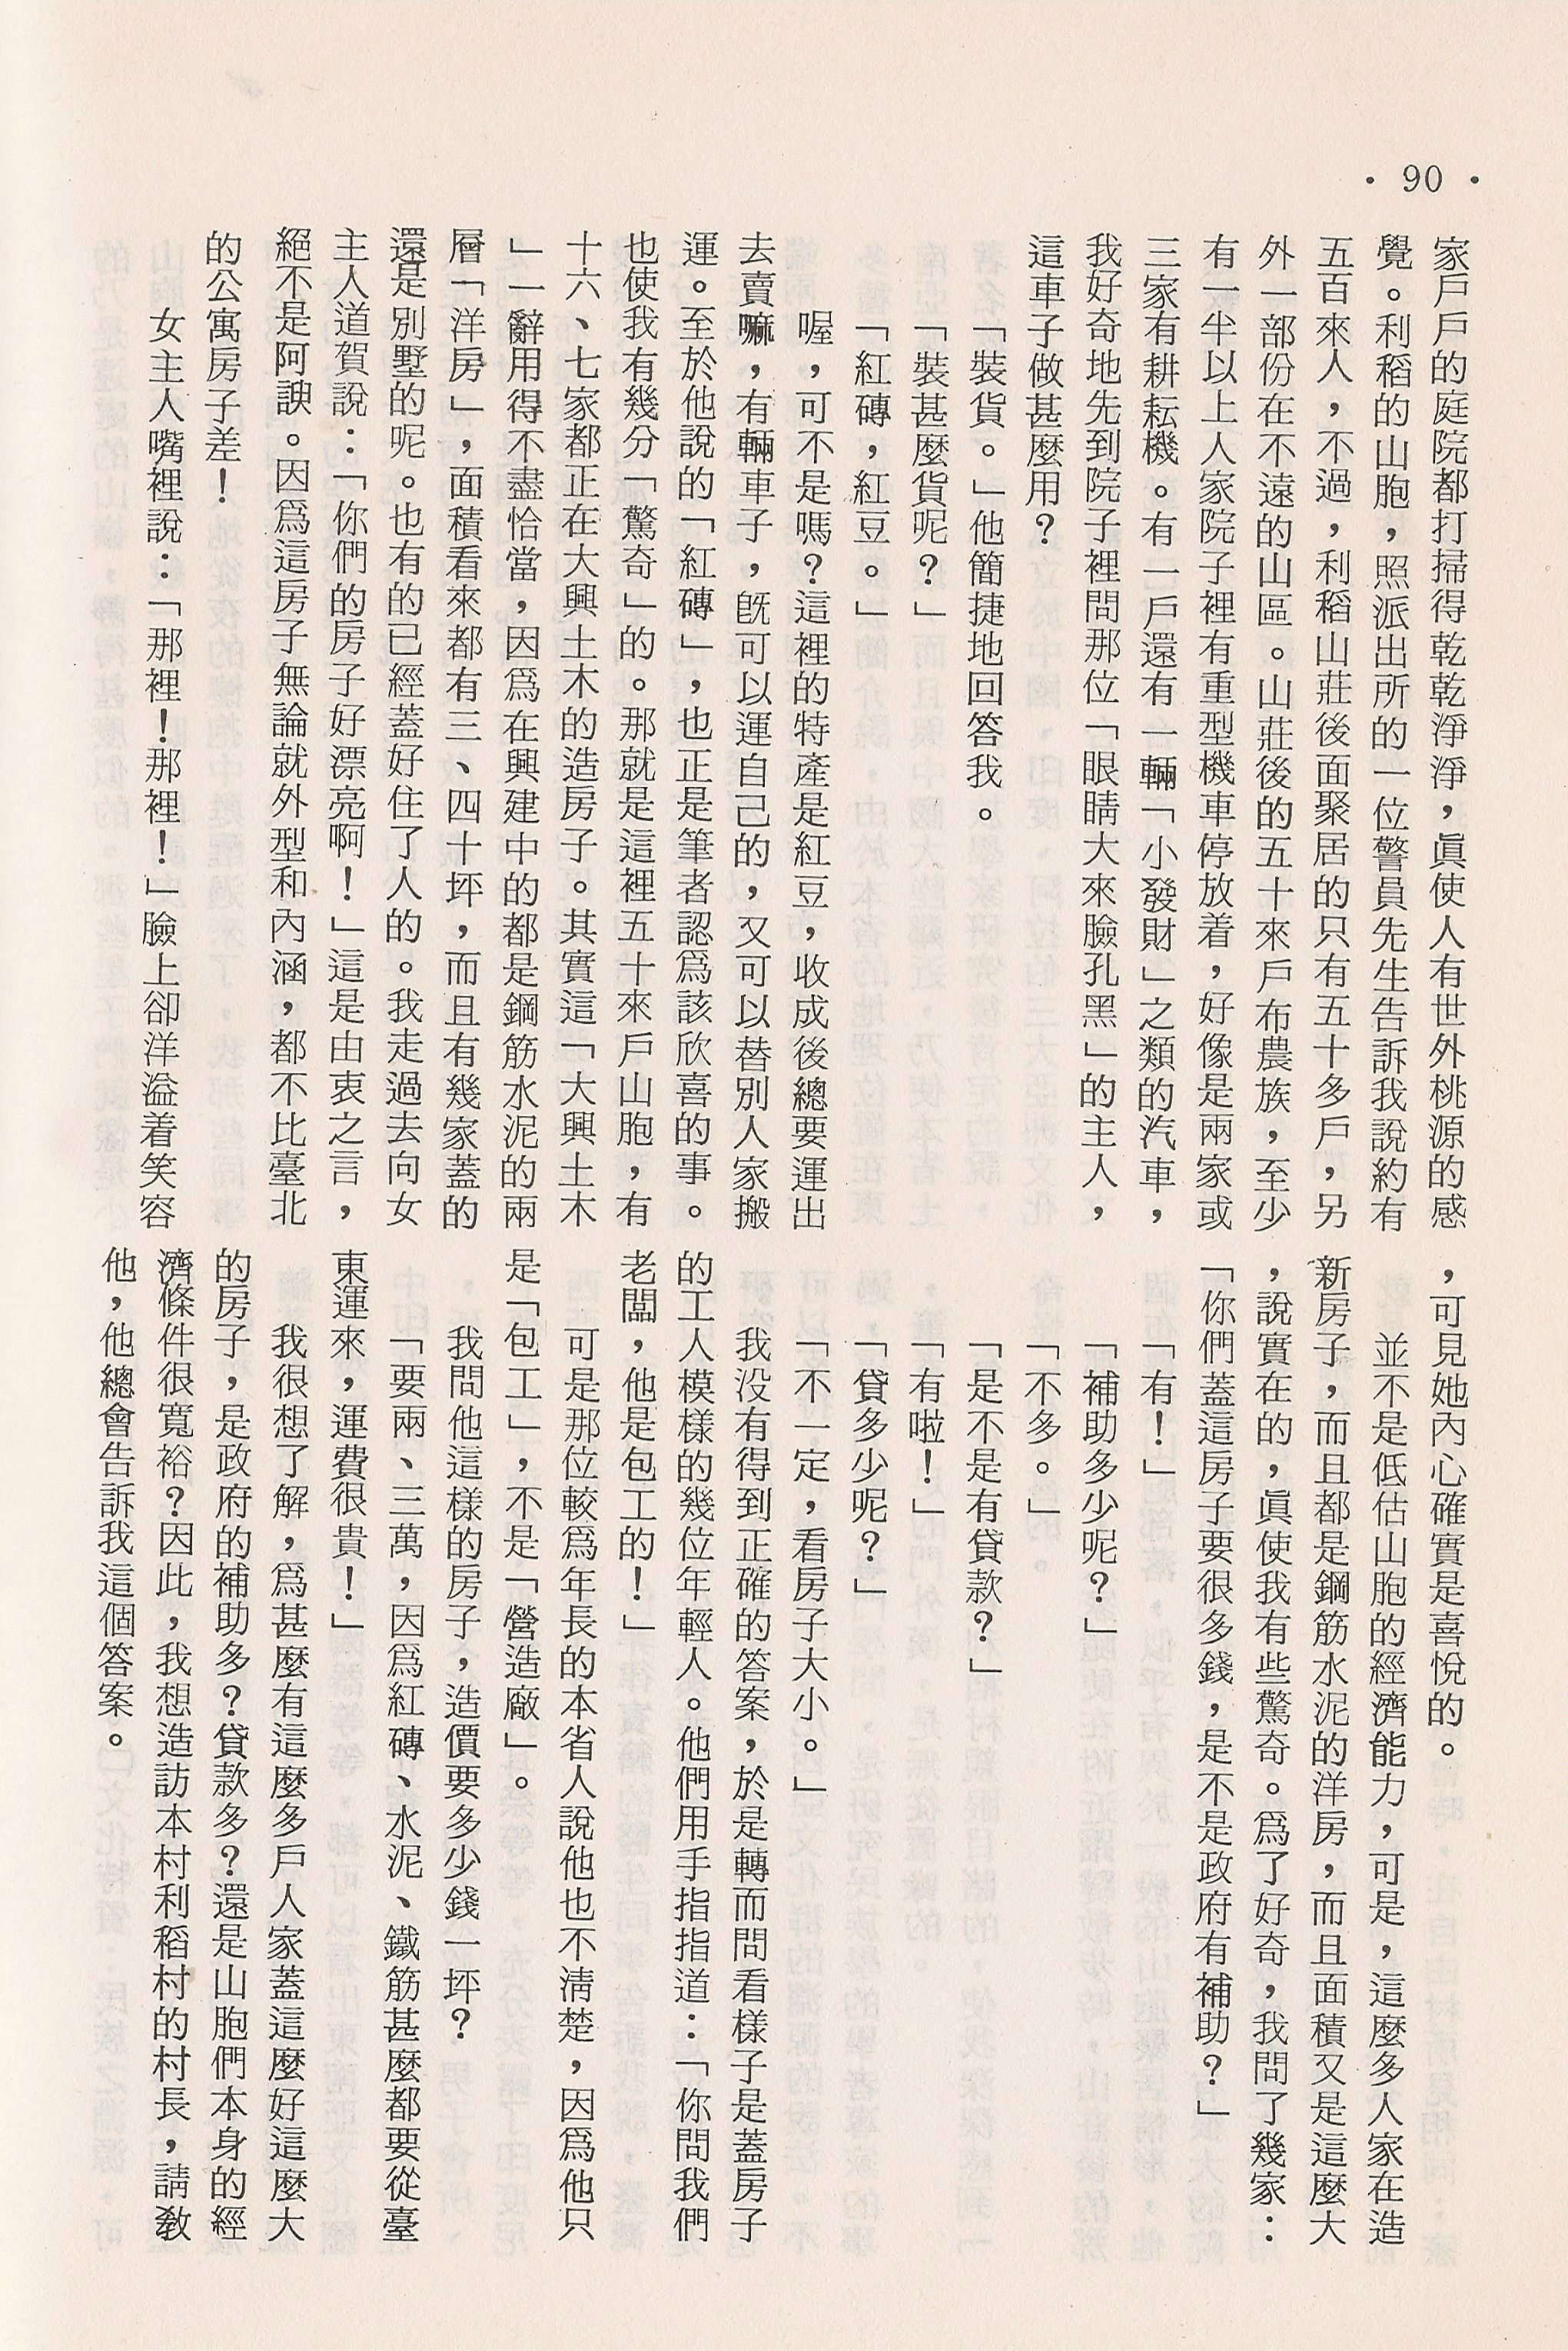 ・90・
家戶戶的庭院都打掃得乾乾淨淨，眞使人有世外桃源的感
覺。利稻的山胞，照派出所的一位警員先生告訴我說約有
五百來人，不過，利稻山莊後面聚居的只有五十多戶，另
外一部份在不遠的山區。山莊後的五十來戶布農族，至少
有一半以上人家院子裡有重型機車停放着，好像是兩家或
三家有耕耘機。有一戶還有一輛「小發財」之類的汽車，
我好奇地先到院子裡問那位「眼睛大來臉孔黑」的主人，
這車子做甚麼用？
「裝貨。」他簡捷地回答我。
「裝甚麼貨呢？」
「紅磚，紅豆。」
喔，可不是嗎？這裡的特產是紅豆，收成後總要運出
去賣嘛，有輛車子，旣可以運自己的，又可以替別人家搬
運。至於他說的「紅磚」，也正是筆者認爲該欣喜的事。
也使我有幾分「驚奇」的。那就是這裡五十來戶山胞，有
十六、七家都正在大興土木的造房子。其實這「大興土木
」一辭用得不盡恰當，因爲在興建中的都是鋼筋水泥的兩
層「洋房」，面積看來都有三、四十坪，而且有幾家蓋的
還是別墅的呢。也有的已經蓋好住了人的。我走過去向女
主人道賀說：「你們的房子好漂亮啊！」這是由衷之言，
絕不是阿諛。因爲這房子無論就外型和內涵，都不比臺北
的公寓房子差！
女主人嘴裡說：「那裡！那裡！」臉上卻洋溢着笑容
，可見她內心確實是喜悅的。
並不是低估山胞的經濟能力，可是，這麼多人家在造
新房子，而且都是鋼筋水泥的洋房，而且面積又是這麼大
，說實在的，眞使我有些驚奇。爲了好奇，我問了幾家：
「你們蓋這房子要很多錢，是不是政府有補助？」
「有！」
「補助多少呢？」
「不多。」
「是不是有貸款？」
「有啦！」
「貸多少呢？」
「不一定，看房子大小。」
我没有得到正確的答案，於是轉而問看樣子是蓋房子
的工人模樣的幾位年輕人。他們用手指指道：「你問我們
老闆，他是包工的！」
可是那位較爲年長的本省人說他也不淸楚，因爲他只
是「包工」，不是「營造廠」。
我問他這樣的房子，造價要多少錢一坪？
「要兩、三萬，因爲紅磚、水泥、鐵筋甚麼都要從臺
東運來，運費很貴！」
我很想了解，爲甚麼有這麼多戶人家蓋這麼好這麼大
的房子，是政府的補助多？貸款多？還是山胞們本身的經
濟條件很寬裕？因此，我想造訪本村利稻村的村長，請教
他，他總會告訴我這個答案。